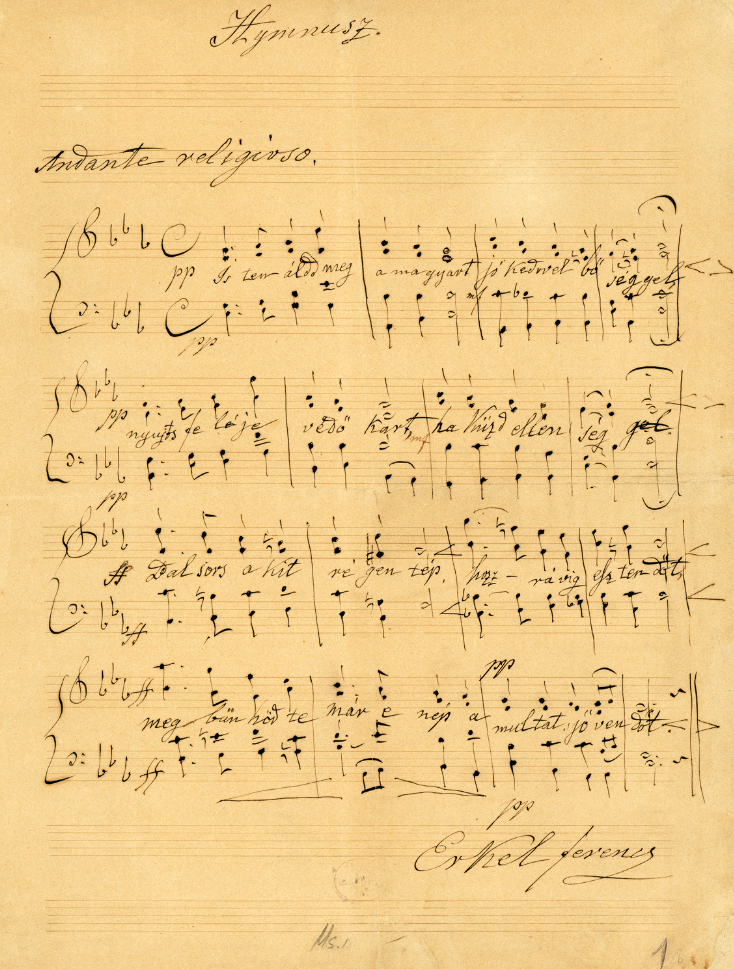 Hymnusz.
Andante religioso.
pp Is ten áldd meg a magyart jó kedvvel bő ség gel,
mf
pp
pp nyujts fe lé je védő kart, ha küzd ellen ség gel.
mf
pp
ff Bal sors a kit ré gen tép, hoz – rá víg esz ten dőt,
ff
pp
ff meg bűn hőd te már e nép a multat, jö ven dőt
ff
pp
Erkel ferencz
Ms. 1
1